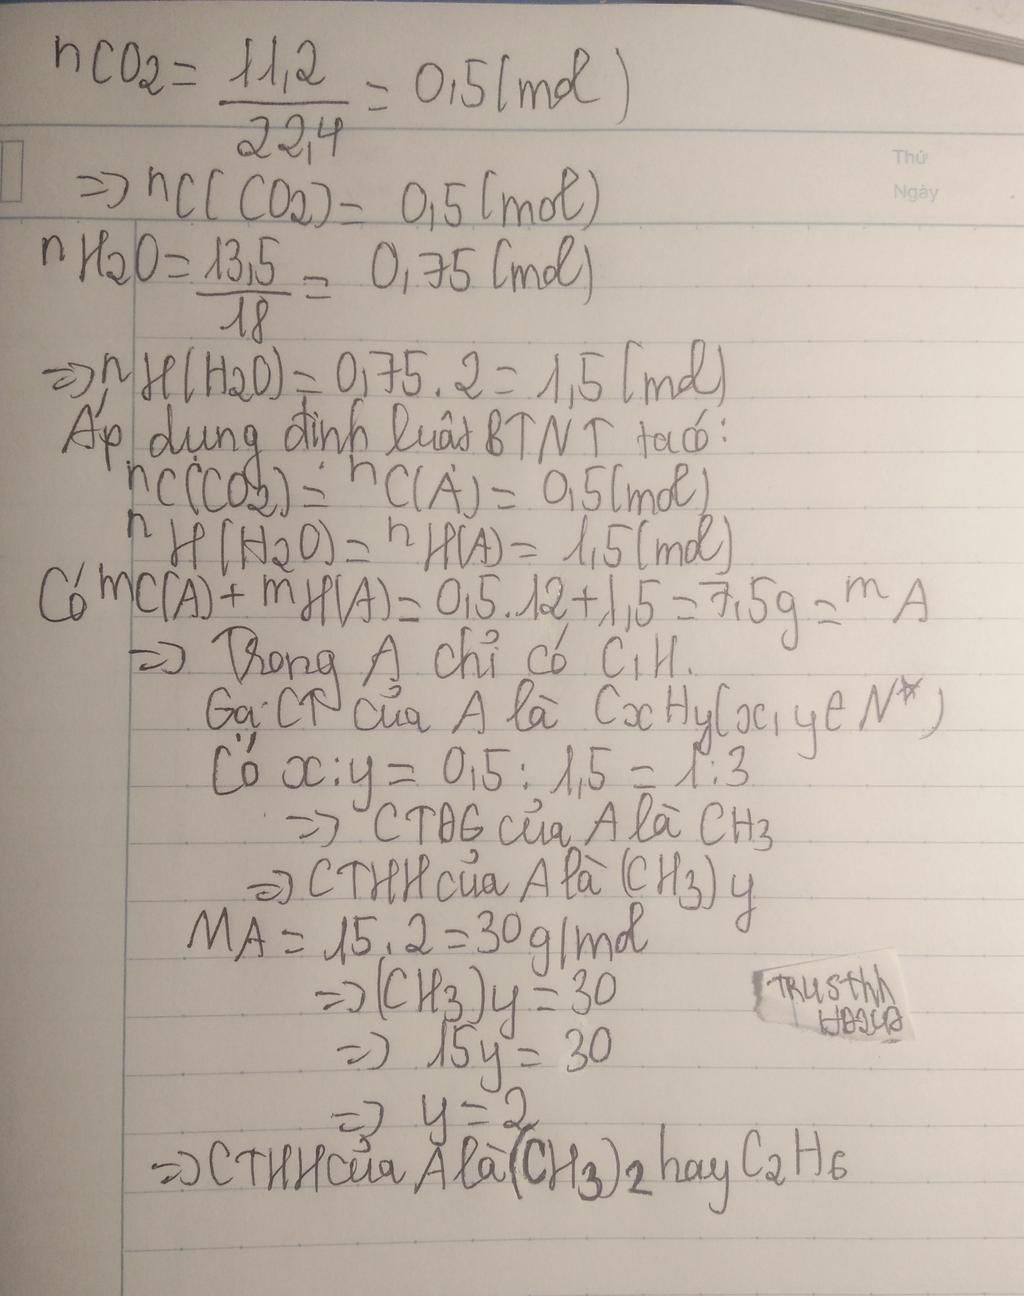 nCO2 = 11,2 / 22,4 = 0,5 (mol)
Thứ
Ngày
=> nC(CO2) = 0,5 (mol)
nH2O = 13,5 / 18 = 0,75 (mol)
=> nH(H2O) = 0,75 . 2 = 1,5 (mol)
Áp dụng định luật BTNT ta có:
nC(CO2) = nC(A) = 0,5 (mol)
nH(H2O) = nH(A) = 1,5 (mol)
Có mC(A) + mH(A) = 0,5.12 + 1,5 = 7,5g = mA
=> Trong A chỉ có C, H.
Gọi CT của A là CxHy (x, y ∈ N*)
Có x : y = 0,5 : 1,5 = 1 : 3
=> CTĐG của A là CH3
=> CTHH của A là (CH3)y
MA = 15 . 2 = 30 g/mol
=> (CH3)y = 30
=> 15y = 30
=> y = 2
=> CTHH của A là (CH3)2 hay C2H6